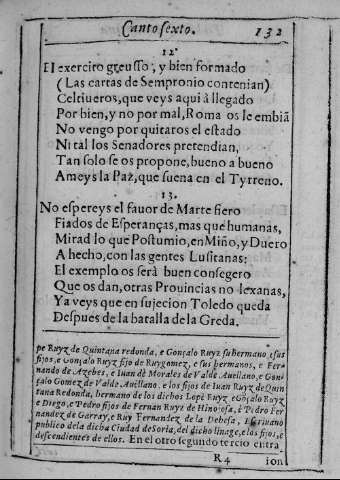 Canto sexto. 132
12
El exercito gruesso, y bien formado
(Las cartas de Sempronio contenian)
Celtiueros, que veys aqui à llegado
Por bien, y no por mal, Roma os le embiã
No vengo por quitaros el estado
Ni tal los Senadores pretendian,
Tan solo se os propone, bueno a bueno
Ameys la Paz, que suena en el Tyrreno.
13.
No espereys el fauor de Marte fiero
Fiados de Esperanças, mas que humanas,
Mirad lo que Postumio, en Miño, y Duero
A hecho, con las gentes Lusitanas:
El exemplo os serà buen consegero
Que os dan, otras Prouincias no lexanas,
Ya veys que en sujecion Toledo queda
Despues de la batalla de la Greda.
pe Ruyz de Quintana redonda, e Gonçalo Ruyz su hermano, e sus
fijos, e Gonçalo Ruyz fijo de Ruygomez, e sus hermanos, e Fer-
nando de Azebes, e Iuan de Morales de Valde Auellano, e Gon-
çalo Gomez de Valde Auellano, e los fijos de Iuan Ruyz de Quin
tana Redonda, hermano de los dichos Lope Ruyz e Gonçalo Ruyz
e Diego, e Pedro fijos de Fernan Ruyz de Hinojosa, e Pedro Fer
nandez de Garray, e Ruy Fernandez de la Debesa, Escriuano
publico de la dicha Ciudad de Soria, del dicho linage, e los fijos, e
descendientes de ellos. En el otro segundo tercio entra
R4 ion